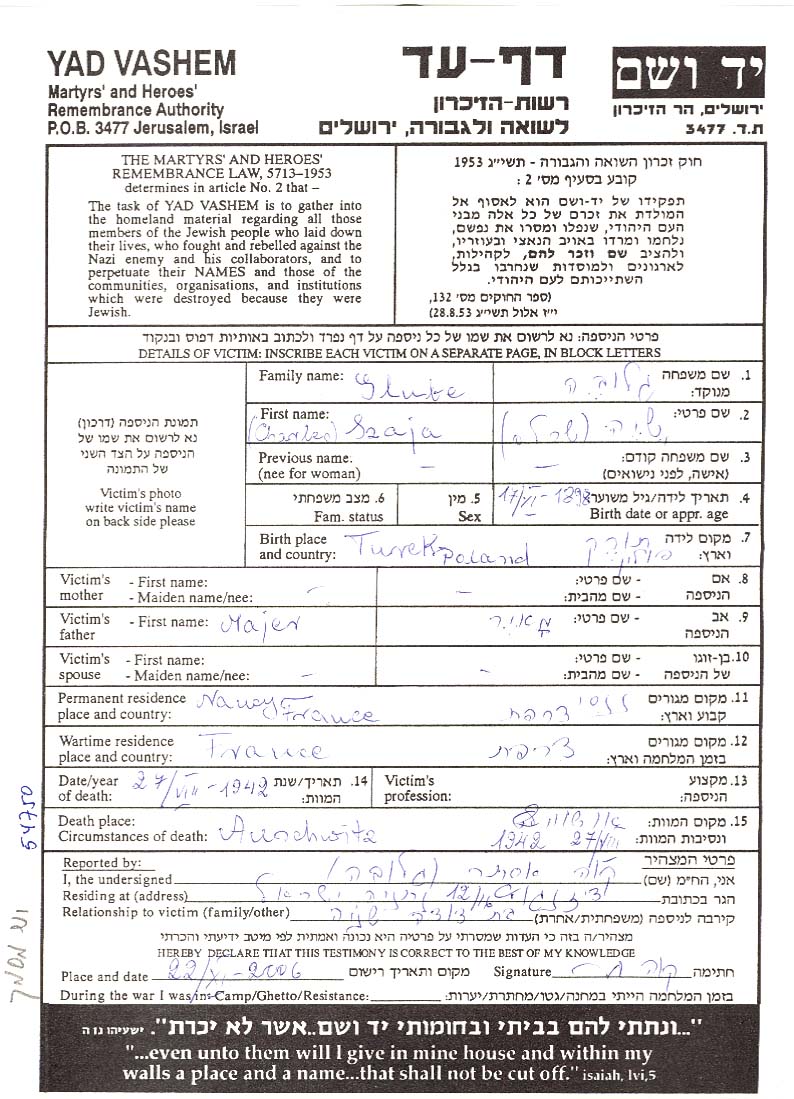 YAD VASHEM
Martyrs' and Heroes'
Remembrance Authority
P.O.B. 3477 Jerusalem, Israel
דף-עד
רשות-הזיכרון
לשואה ולגבורה, ירושלים
יד ושם
ירושלים, הר הזיכרון
ת.ד. 3477
THE MARTYRS' AND HEROES'
REMEMBRANCE LAW, 5713–1953
determines in article No. 2 that –
The task of YAD VASHEM is to gather into
the homeland material regarding all those
members of the Jewish people who laid down
their lives, who fought and rebelled against the
Nazi enemy and his collaborators, and to
perpetuate their NAMES and those of the
communities, organisations, and institutions
which were destroyed because they were
Jewish.
חוק זכרון השואה והגבורה - תשי״ג 1953
קובע בסעיף מס׳ 2 :
תפקידו של יד-ושם הוא לאסוף אל
המולדת את זכרם של כל אלה מבני
העם היהודי, שנפלו ומסרו את נפשם,
נלחמו ומרדו באויב הנאצי ובעוזריו,
ולהציב שם וזכר להם, לקהילות,
לארגונים ולמוסדות שנחרבו בגלל
השתייכותם לעם היהודי.
(ספר החוקים מס׳ 132,
י״ז אלול תשי״ג 28.8.53)
פרטי הניספה: נא לרשום את שמו של כל ניספה על דף נפרד ולכתוב באותיות דפוס ובנקוד
DETAILS OF VICTIM: INSCRIBE EACH VICTIM ON A SEPARATE PAGE, IN BLOCK LETTERS
תמונת הניספה (דרכון)
נא לרשום את שמו של
הניספה על הצד השני
של התמונה
Victim's photo
write victim's name
on back side please
Family name: Glube גלובה 1. שם משפחה
מנוקד:
First name: 2. שם פרטי:
(Charles) Szaja
Previous name: – – 3. שם משפחה קודם:
(nee for woman) (אישה, לפני נישואים)
6. מצב משפחתי 5. מין 17/XI-1898 4. תאריך לידה/גיל משוער
Fam. status Sex Birth date or appr. age
Birth place Turek Poland תורק פולין 7. מקום לידה
and country: וארץ:
Victim's - First name: - שם פרטי: 8. אם
mother - Maiden name/nee: – – - שם מהבית: הניספה
Victim's - First name: Majer מאיר - שם פרטי: 9. אב
father הניספה
Victim's - First name: - שם פרטי: 10. בן-זוגו
spouse - Maiden name/nee: – – - שם מהבית: של הניספה
Permanent residence Nancy France ננסי צרפת 11. מקום מגורים
place and country: קבוע וארץ:
Wartime residence France צרפת 12. מקום מגורים
place and country: בזמן המלחמה וארץ:
Date/year 27/VIII-1942 14. תאריך/שנת Victim's 13. מקצוע
of death: המוות: profession: הניספה:
Death place: 15. מקום המוות:
Circumstances of death: Auschwitz 1942 27/VIII ונסיבות המוות:
Reported by: פרטי המצהיר
I, the undersigned (גלובה) אני, החי״מ (שם)
Residing at (address) ישראל הגר בכתובת
Relationship to victim (family/other) קירבה לניספה (משפחתית/אחרת)
מצהיר/ה בזה כי העדות שמסרתי על פרטיה היא נכונה ואמתית לפי מיטב ידיעתי והכרתי
HEREBY DECLARE THAT THIS TESTIMONY IS CORRECT TO THE BEST OF MY KNOWLEDGE
Place and date 22/XI-2006 מקום ותאריך רישום Signature חתימה
During the war I was in: Camp/Ghetto/Resistance: בזמן המלחמה הייתי במחנה/גטו/מחתרת/יערות:
"...ונתתי להם בביתי ובחומותי יד ושם..אשר לא יכרת". ישעיהו נו ה
"...even unto them will I give in mine house and within my
walls a place and a name...that shall not be cut off." isaiah, lvi,5
54750